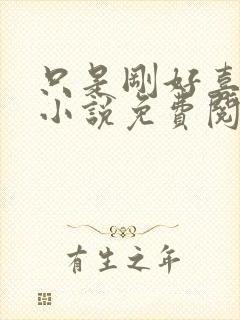 只是剛好喜
小說免費閱
有生之年